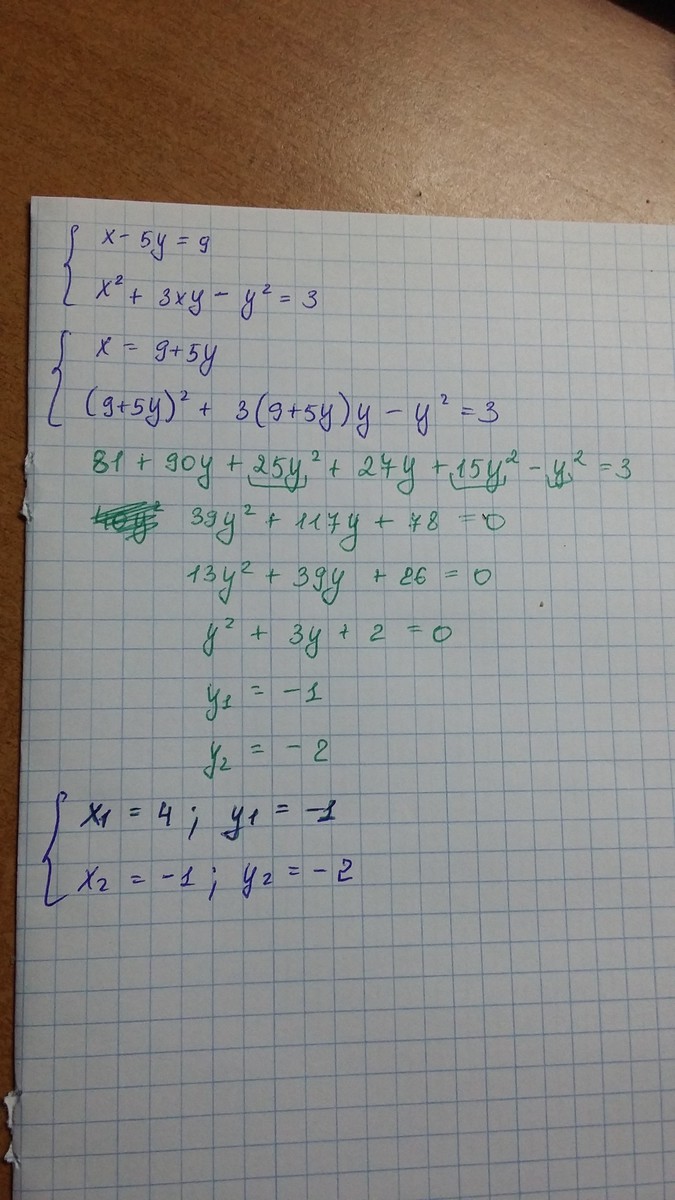 x - 5y = 9
x² + 3xy - y² = 3
x = 9+5y
(9+5y)² + 3(9+5y)y - y² = 3
81 + 90y + 25y² + 27y + 15y² - y² = 3
39y² + 117y + 78 = 0
13y² + 39y + 26 = 0
y² + 3y + 2 = 0
y₁ = -1
y₂ = -2
x₁ = 4 ; y₁ = -1
x₂ = -1 ; y₂ = -2